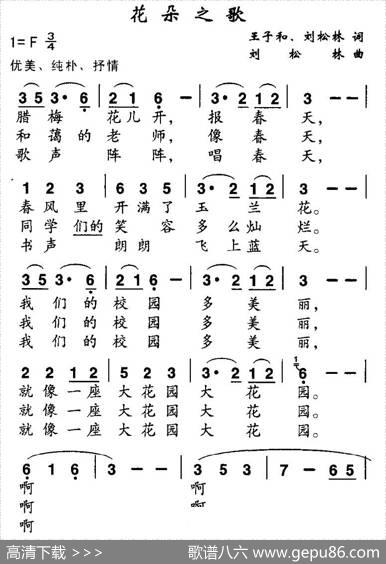 花朵之歌
1=F 3/4
王子和、刘松林 词
刘松林 曲
优美、纯朴、抒情
3 5 3· 6 | 2 1 6 - | 3· 2 1 2 | 3 - - |
腊梅花儿开，报春天，
和蔼的老师，像春天，
歌声阵阵，唱春天，
1 2 3 | 6 3 5 | 3· 2 1 2 | 3 - - |
春风里开满了玉兰花。
同学们的笑容多么灿烂。
书声朗朗飞上蓝天。
3 5 3· 6 | 2 1 6 | 3· 2 1 2 | 3 - - |
我们的校园多美丽，
我们的校园多美丽，
我们的校园多美丽，
2 2 1 2 | 5 2 3 | 3· 2 1 2 | 6 - - |
就像一座大花园大花园。
就像一座大花园大花园。
就像一座大花园大花园。
6 1 6 | 3 - - | 3 5 3 | 7 - 6 5 |
啊 啊
啊 啊
啊
高清下载 >>>
歌谱八六 www.gepu86.com